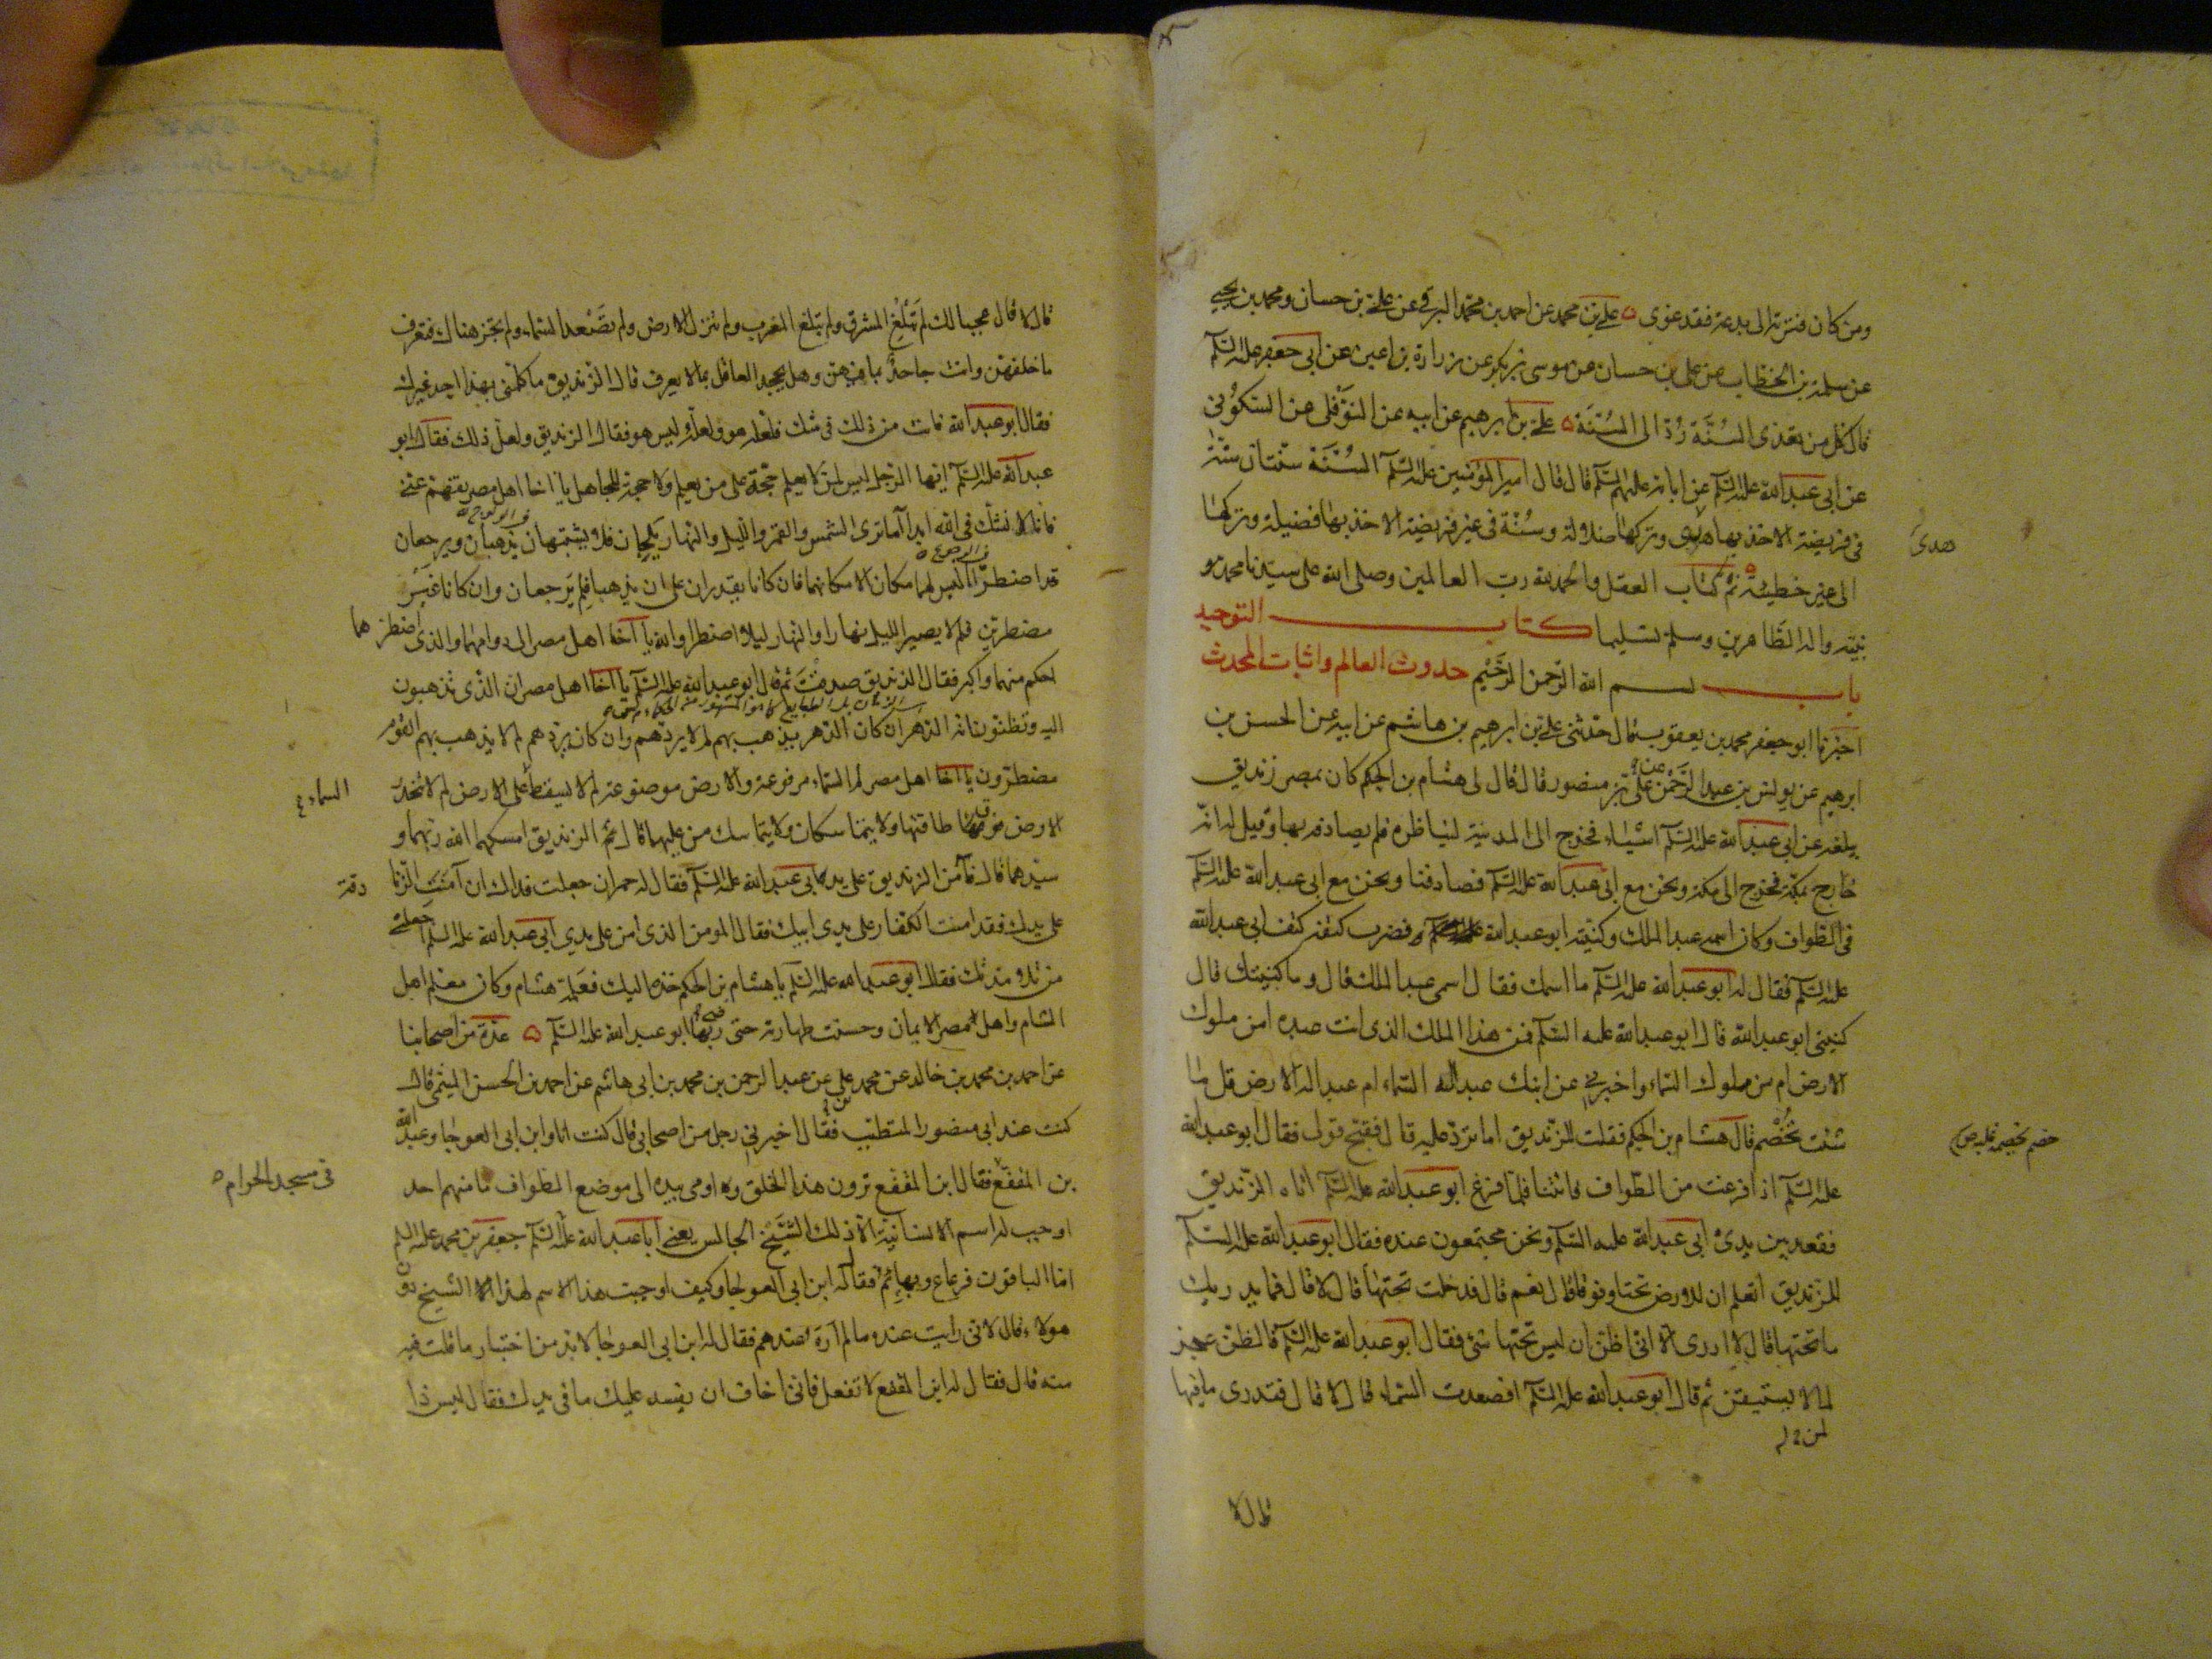 ومن كان فترته الى بدعة فقد غوى علي بن محمد عن احمد بن محمد البرقي عن علي بن حسان ومحمد بن يحيى
عن سلمة بن الخطاب عن علي بن حسان عن موسى بن بكر عن زرارة بن اعين عن ابي جعفر عليه السلم
قال كل من تعدى السنة رد الى السنة علي بن ابرهيم عن ابيه عن النوفلي عن السكوني
عن ابي عبد الله عليه السلم عن ابائه عليهم السلم قال قال امير المؤمنين عليه السلم السنة سنتان سنة
في فريضة الاخذ بها هدى وتركها ضلالة وسنة في غير فريضة الاخذ بها فضيلة وتركها
هدى
الى غير خطيئة تم كتاب العقل والحمد لله رب العالمين وصلى الله على سيدنا محمد و
نبيه واله الطاهرين وسلم تسليما كتاب التوحيد
باب بسم الله الرحمن الرحيم حدوث العالم واثبات المحدث
اخبرنا ابو جعفر محمد بن يعقوب قال حدثني علي بن ابرهيم بن هاشم عن ابيه عن الحسن بن
ابرهيم عن يونس بن عبد الرحمن عن علي بن منصور قال قال لي هشام بن الحكم كان بمصر زنديق
يبلغه عن ابي عبد الله عليه السلم اشياء فخرج الى المدينة ليناظره فلم يصادفه بها وقيل له انه
خارج بمكة فخرج الى مكة ونحن مع ابي عبد الله عليه السلم فصادفنا ونحن مع ابي عبد الله عليه السلم
في الطواف وكان اسمه عبد الملك وكنيته ابو عبد الله فضرب كتفه كتف ابي عبد الله
عليه السلم فقال له ابو عبد الله عليه السلم ما اسمك فقال اسمي عبد الملك قال وما كنيتك قال
كنيتي ابو عبد الله قال ابو عبد الله عليه السلم فمن هذا الملك الذي انت عبده امن ملوك
الارض ام من ملوك السماء واخبرني عن ابنك عبد اله السماء ام عبد اله الارض قل ما
شئت تخصم قال هشام بن الحكم فقلت للزنديق اما ترد عليه قال فقبح قولي فقال ابو عبد الله
خصم يخصم
عليه السلم اذا فرغت من الطواف فائتنا فلما فرغ ابو عبد الله عليه السلم اتاه الزنديق
فقعد بين يدي ابي عبد الله عليه السلم ونحن مجتمعون عنده فقال ابو عبد الله عليه السلم
للزنديق اتعلم ان للارض تحتا وفوقا قال نعم قال فدخلت تحتها قال لا قال فما يدريك
ما تحتها قال لا ادري الا اني اظن ان ليس تحتها شئ فقال ابو عبد الله عليه السلم فالظن عجز
لما لا يستيقن ثم قال ابو عبد الله عليه السلم افصعدت السماء قال لا قال فتدري ما فيها
لمن
قال لا
قال لا قال عجبا لك لم تبلغ المشرق ولم تبلغ المغرب ولم تنزل الارض ولم تصعد السماء ولم تجز هناك فتعرف
ما خلفهن وانت جاحد بما فيهن وهل يجحد العاقل بما لا يعرف قال الزنديق ما كلمني بهذا احد غيرك
فقال ابو عبد الله فانت من ذلك في شك فلعله هو ولعله ليس هو فقال الزنديق ولعل ذلك فقال ابو
عبد الله عليه السلم ايها الرجل ليس لمن لا يعلم حجة على من يعلم ولا حجة للجاهل يا اخا اهل مصر تفهم عني
فانا لا نشك في الله ابدا اما ترى الشمس والقمر والليل والنهار يلجان فلا يشتبهان يذهبان ويرجعان
قد اضطرا ليس لهما مكان الا مكانهما فان كانا يقدران على ان يذهبا فلم يرجعان وان كانا غير
مضطرين فلم لا يصير الليل نهارا والنهار ليلا اضطرا والله يا اخا اهل مصر الى دوامهما والذي اضطرهما
احكم منهما واكبر فقال الزنديق صدقت ثم قال ابو عبد الله عليه السلم يا اخا اهل مصر ان الذي تذهبون
اليه وتظنون انه الدهر ان كان الدهر يذهب بهم لم لا يردهم وان كان يردهم لم لا يذهب بهم القوم
مضطرون يا اخا اهل مصر لم السماء مرفوعة والارض موضوعة لم لا يسقط على الارض لم لا تنحدر
السماء
الارض فوق طاقتها ولا يتماسكان ولا يتماسك من عليها قال الزنديق امسكهما الله ربهما و
سيدهما قال فآمن الزنديق على يدي ابي عبد الله عليه السلم فقال له حمران جعلت فداك ان آمنت الزنا
دقة
على يدك فقد امنت الكفار على يدي ابيك فقال المؤمن الذي امن على يدي ابي عبد الله عليه السلم اجعلني
من تلامذتك فقال ابو عبد الله عليه السلم يا هشام بن الحكم خذه اليك فعلمه هشام وكان معلم اهل
الشام واهل مصر الايمان وحسنت طهارته حتى رضي بها ابو عبد الله عليه السلم عدة من اصحابنا
عن احمد بن محمد بن خالد عن محمد بن علي عن عبد الرحمن بن محمد بن ابي هاشم عن احمد بن الحسن الميثمي قال
كنت عند ابي منصور المتطبب فقال اخبرني رجل من اصحابي قال كنت انا وابن ابي العوجا وعبد الله
بن المقفع فقال ابن المقفع ترون هذا الخلق واومى بيده الى موضع الطواف ما منهم احد
في مسجد الحرام
اوجب له اسم الانسانية الا ذلك الشيخ الجالس يعني ابا عبد الله عليه السلم جعفر بن محمد عليه السلم
اما الباقون فرعاع وبهائم فقال له ابن ابي العوجا وكيف اوجبت هذا الاسم لهذا الشيخ دون
هولاء قال لاني رايت عنده ما لم اره عندهم فقال له ابن ابي العوجا لا بد من اختبار ما قلت فيه
منه قال فقال له ابن المقفع لا تفعل فاني اخاف ان يفسد عليك ما في يدك فقال ليس ذا